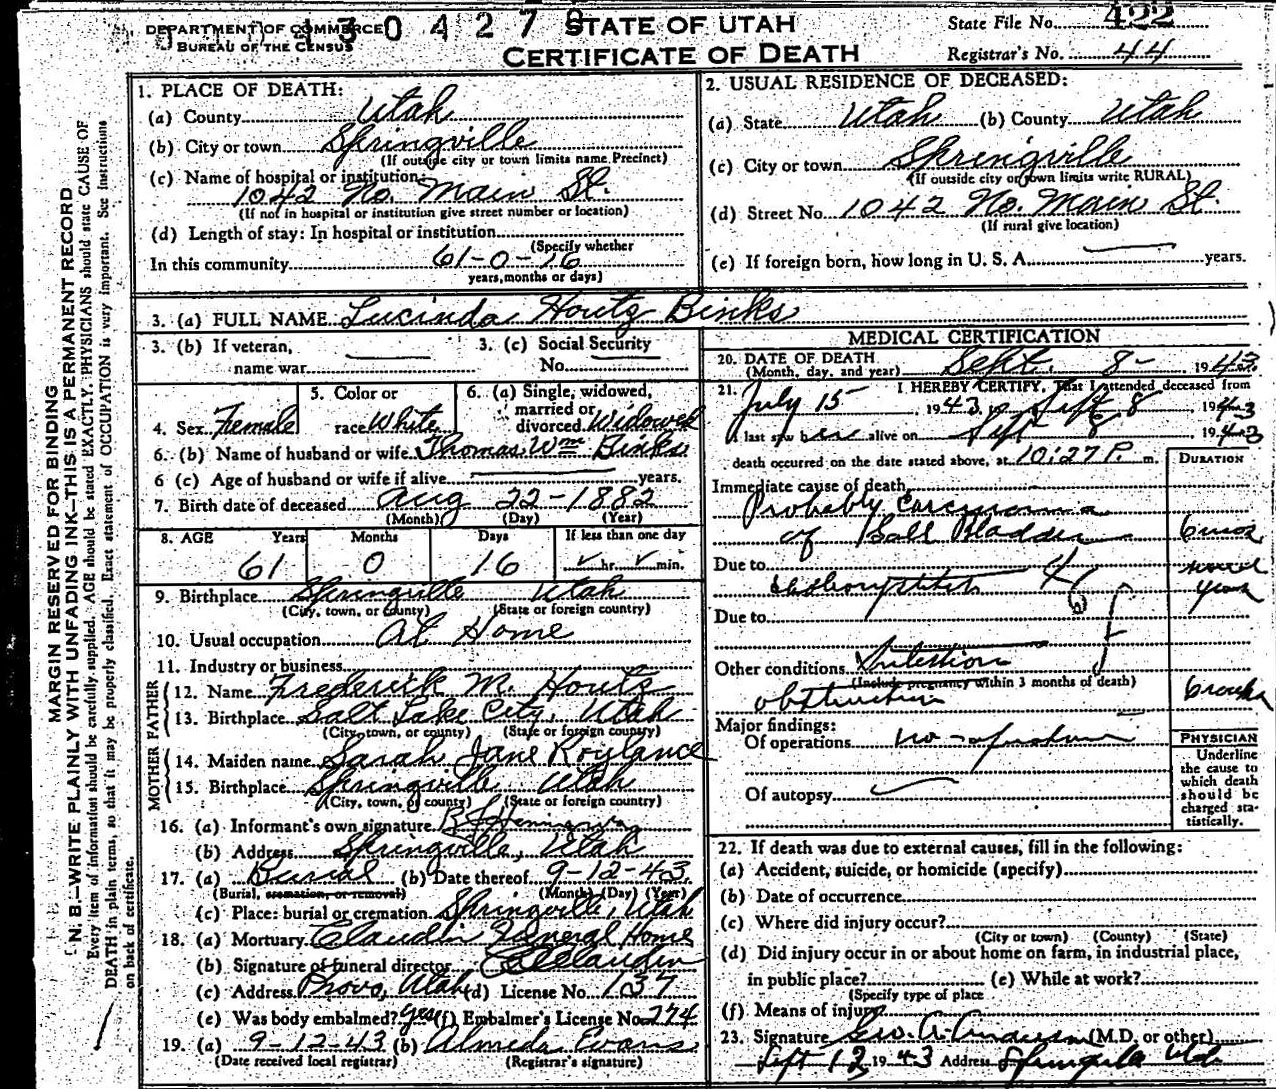 DEPARTMENT OF COMMERCE
BUREAU OF THE CENSUS
3 0 4 2 7 8
STATE OF UTAH
CERTIFICATE OF DEATH
State File No. 422
Registrar's No. 44
MARGIN RESERVED FOR BINDING
N. B.—WRITE PLAINLY WITH UNFADING INK—THIS IS A PERMANENT RECORD
Every item of information should be carefully supplied. AGE should be stated EXACTLY. PHYSICIANS should state CAUSE OF
DEATH in plain terms, so that it may be properly classified. Exact statement of OCCUPATION is very important. See instructions
on back of certificate.
1. PLACE OF DEATH:
(a) County Utah
(b) City or town Springville
(If outside city or town limits name Precinct)
(c) Name of hospital or institution:
1042 No. Main St.
(If not in hospital or institution give street number or location)
(d) Length of stay: In hospital or institution
(Specify whether
In this community 61-0-16
years, months or days)
2. USUAL RESIDENCE OF DECEASED:
(a) State Utah (b) County Utah
(c) City or town Springville
(If outside city or town limits write RURAL)
(d) Street No. 1042 No. Main St.
(If rural give location)
(e) If foreign born, how long in U. S. A. years.
3. (a) FULL NAME Lucinda Houtz Binks
3. (b) If veteran,
name war
3. (c) Social Security
No.
4. Sex Female
5. Color or
race White
6. (a) Single, widowed,
married or
divorced Widowed
6. (b) Name of husband or wife Thomas Wm Binks
6 (c) Age of husband or wife if alive years.
7. Birth date of deceased Aug 22-1882
(Month) (Day) (Year)
8. AGE Years Months Days If less than one day
61 0 16 hr. min.
9. Birthplace Springville Utah
(City, town, or county) (State or foreign country)
10. Usual occupation At Home
11. Industry or business
FATHER
12. Name Frederick M. Houtz
13. Birthplace Salt Lake City, Utah
(City, town, or county) (State or foreign country)
MOTHER
14. Maiden name Sarah Jane Roylance
15. Birthplace Springville Utah
(City, town, or county) (State or foreign country)
16. (a) Informant's own signature
(b) Address Springville, Utah
17. (a) Burial (b) Date thereof 9-12-43
(Burial, cremation, or removal) (Month) (Day) (Year)
(c) Place: burial or cremation Springville, Utah
18. (a) Mortuary Claudin Funeral Home
(b) Signature of funeral director Claudin
(c) Address Provo, Utah (d) License No. 137
(e) Was body embalmed? yes (f) Embalmer's License No. 274
19. (a) 9-12-43 (b) Almeda Evans
(Date received local registrar) (Registrar's signature)
MEDICAL CERTIFICATION
20. DATE OF DEATH
(Month, day, and year) Sept. 8- 1943
21. I HEREBY CERTIFY, That I attended deceased from
July 15, 1943, to Sept 8, 1943
I last saw her alive on Sept 8, 1943
death occurred on the date stated above, at 10:27 P. m.
DURATION
Immediate cause of death
Probably Carcinoma
of Gall Bladder 6 mos
Due to
Cholecystitis years
Due to
Other conditions Intestion
(Include pregnancy within 3 months of death)
obstruction 6 weeks
Major findings:
Of operations no-operation
Of autopsy
PHYSICIAN
Underline
the cause to
which death
should be
charged sta-
tistically.
22. If death was due to external causes, fill in the following:
(a) Accident, suicide, or homicide (specify)
(b) Date of occurrence
(c) Where did injury occur?
(City or town) (County) (State)
(d) Did injury occur in or about home on farm, in industrial place,
in public place? (e) While at work?
(Specify type of place
(f) Means of injury
23. Signature Geo. A. Anderson (M.D. or other)
Sept 12, 1943 Address Springville Utah